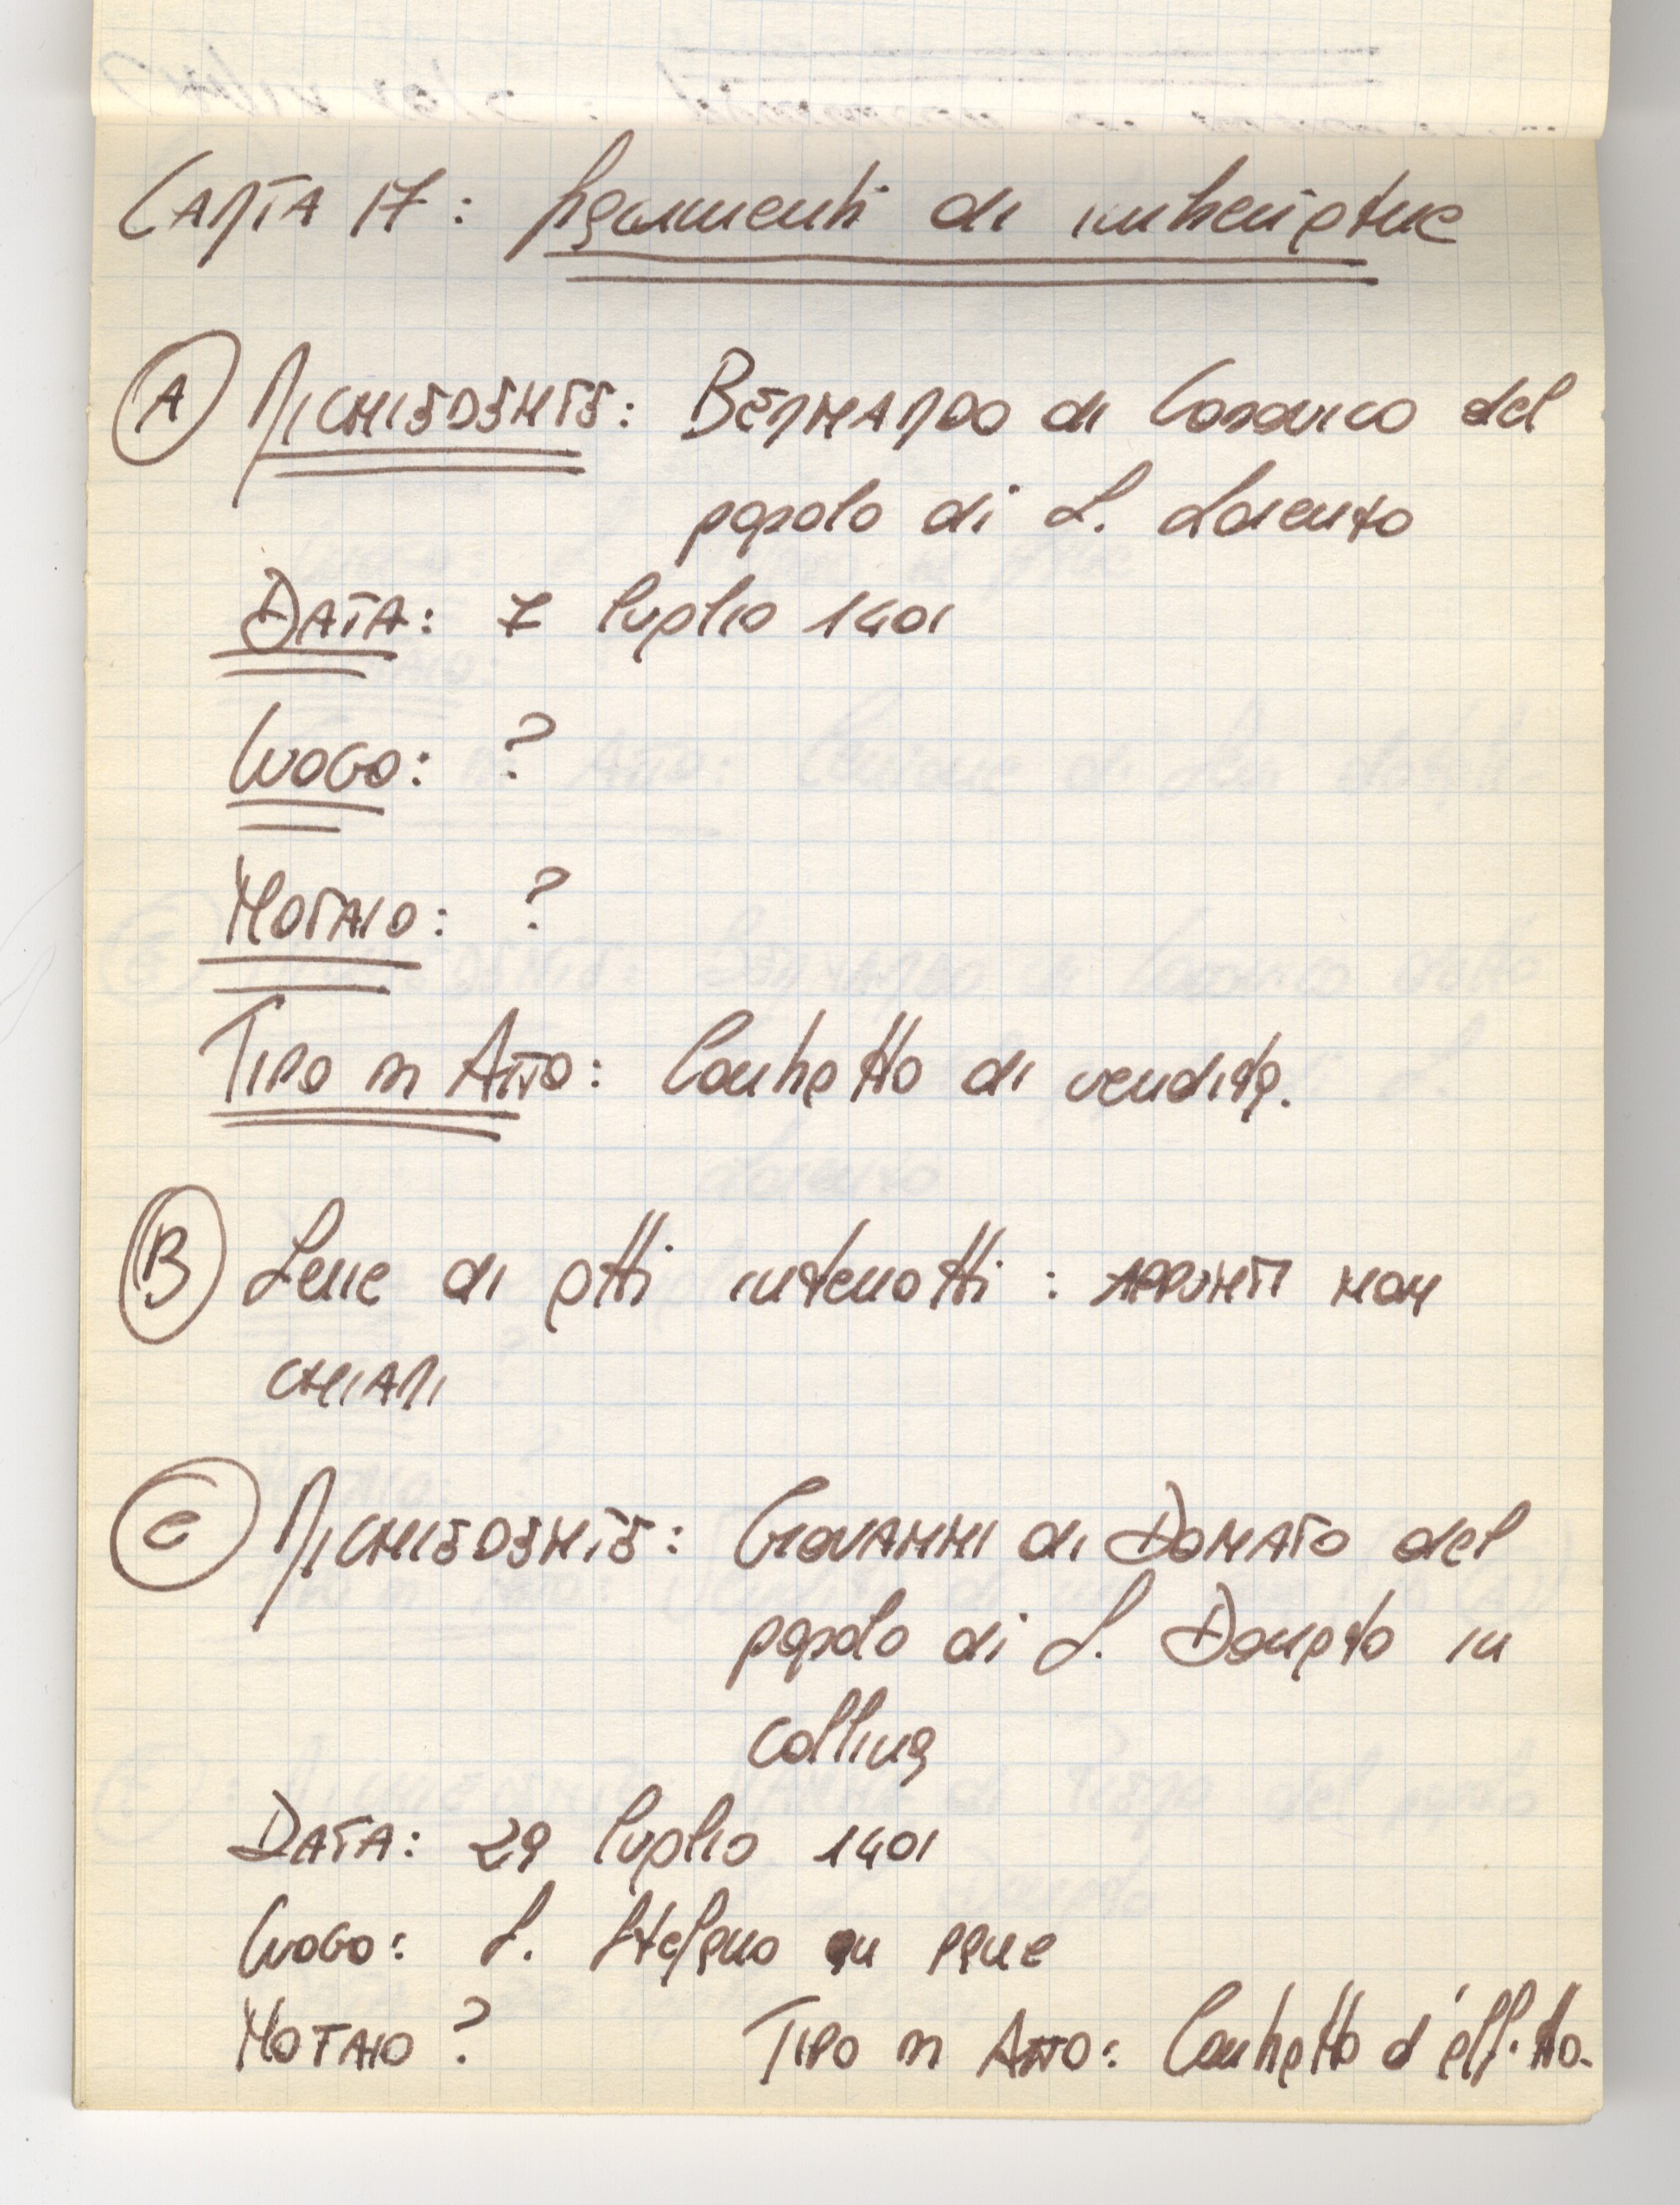 CARTA 17: frammenti di imbreviature
A RICHIEDENTE: BERNARDO di Lodovico del
popolo di S. Lorenzo
DATA: 7 luglio 1401
LUOGO: ?
NOTAIO: ?
TIPO DI ATTO: Contratto di vendita.
B Serie di atti interrotti : APPUNTI NON
CHIARI
C RICHIEDENTE: GIOVANNI di DONATO del
popolo di S. Donato in
collina
DATA: 29 luglio 1401
LUOGO: S. Stefano in pane
NOTAIO ? TIPO DI ATTO: Contratto d'affitto.